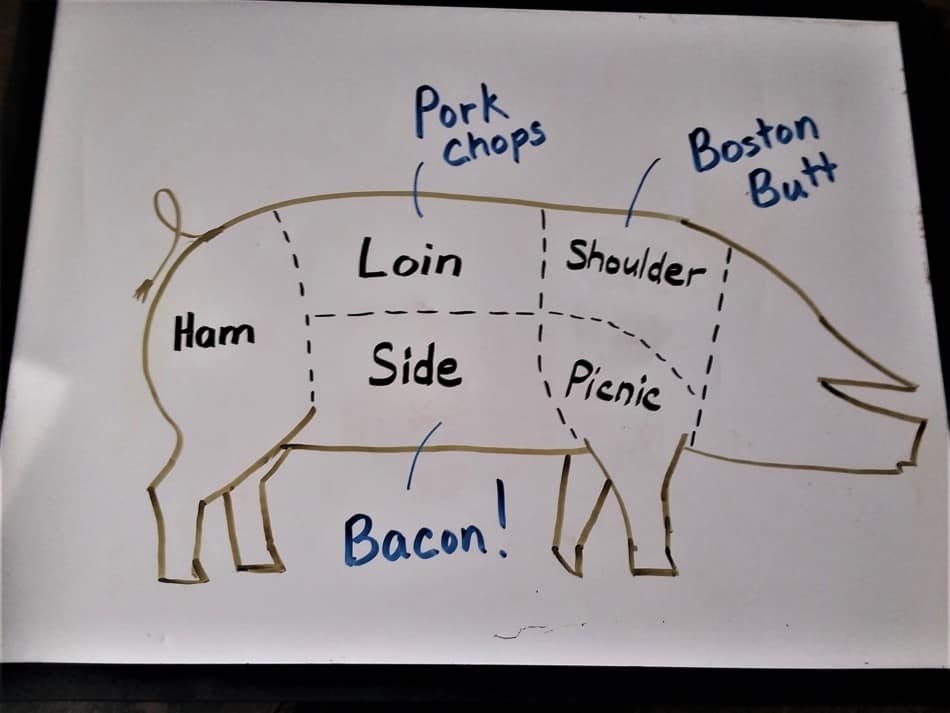 Pork
chops
Boston
Butt
Loin
Shoulder
Ham
Side
Picnic
Bacon!